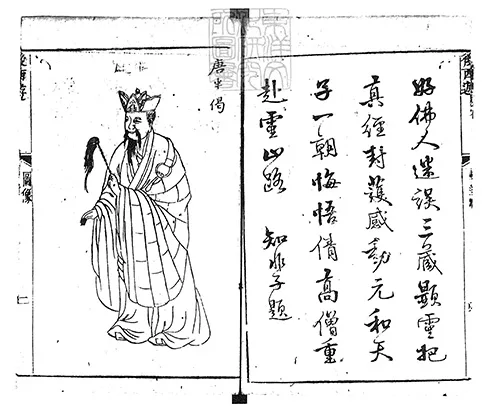 好佛人迷誤三藏顯靈把
真經封護感動元和天
子一朝悔悟倩高僧重
赴靈山路 知非子題
唐半偈
後西遊
圖像